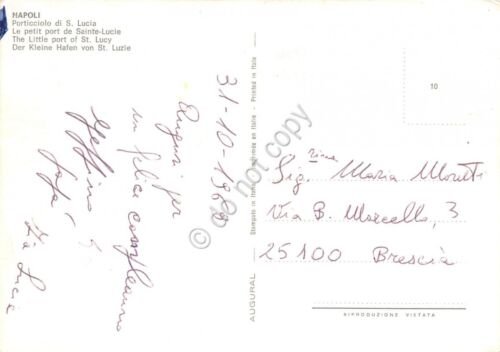 NAPOLI
Porticciolo di S. Lucia
Le petit port de Sainte-Lucie
The Little port of St. Lucy
Der Kleine Hafen von St. Luzie
31-10-1968
Auguri per
un felice compleanno
Zia Lucia
AUGURAL
Stampato in Italia - Imprimé en Italie - Printed in Italy
10
Sig.rina Maria Moretti
Via B. Marcello, 3
25100 Brescia
RIPRODUZIONE VIETATA
do not copy